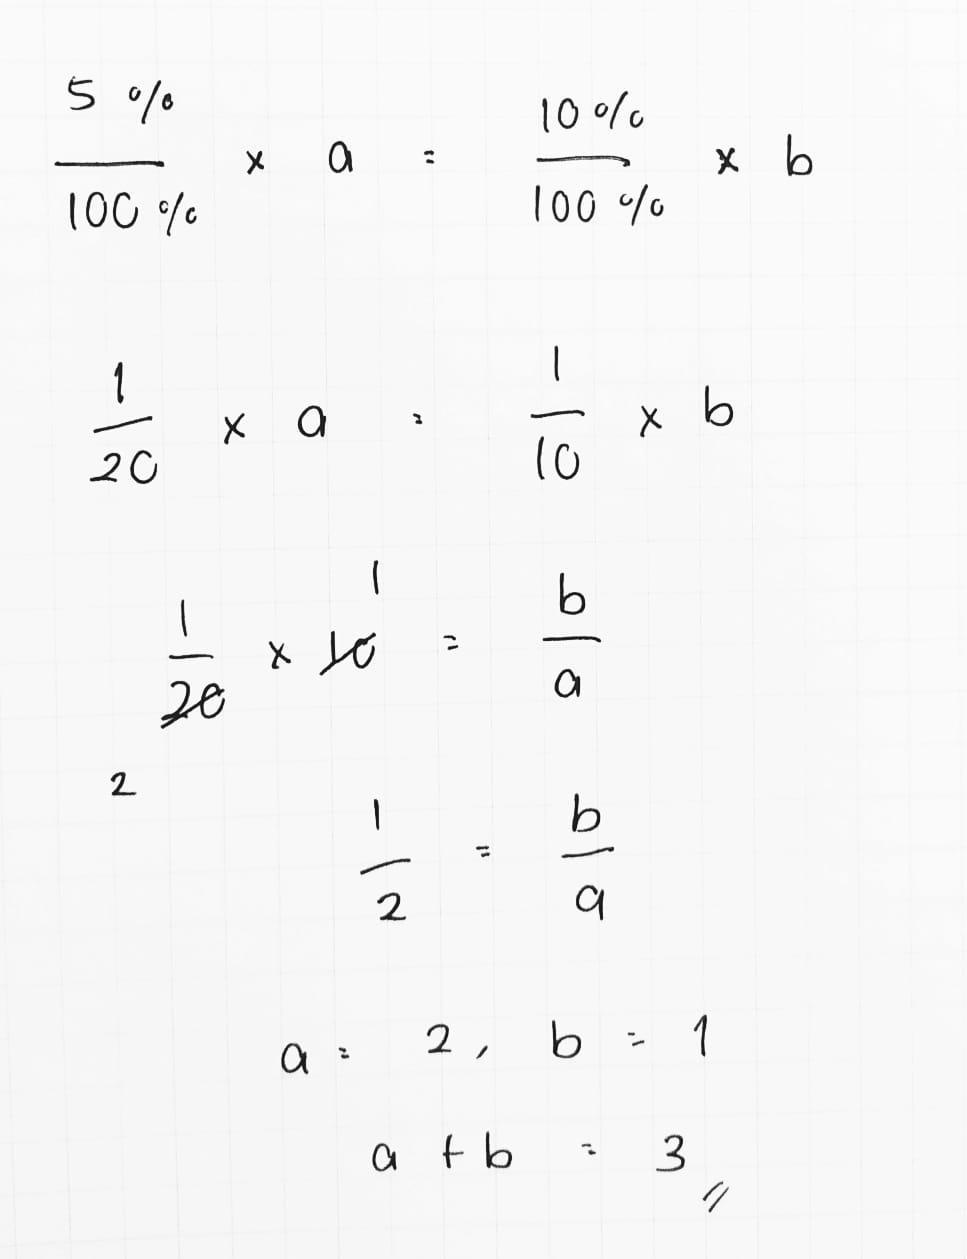 5 % / 100 % × a = 10 % / 100 % × b
1 / 20 × a = 1 / 10 × b
1 / 20 × 10 1 = b / a
2
1 / 2 = b / a
a = 2 , b = 1
a + b = 3 //